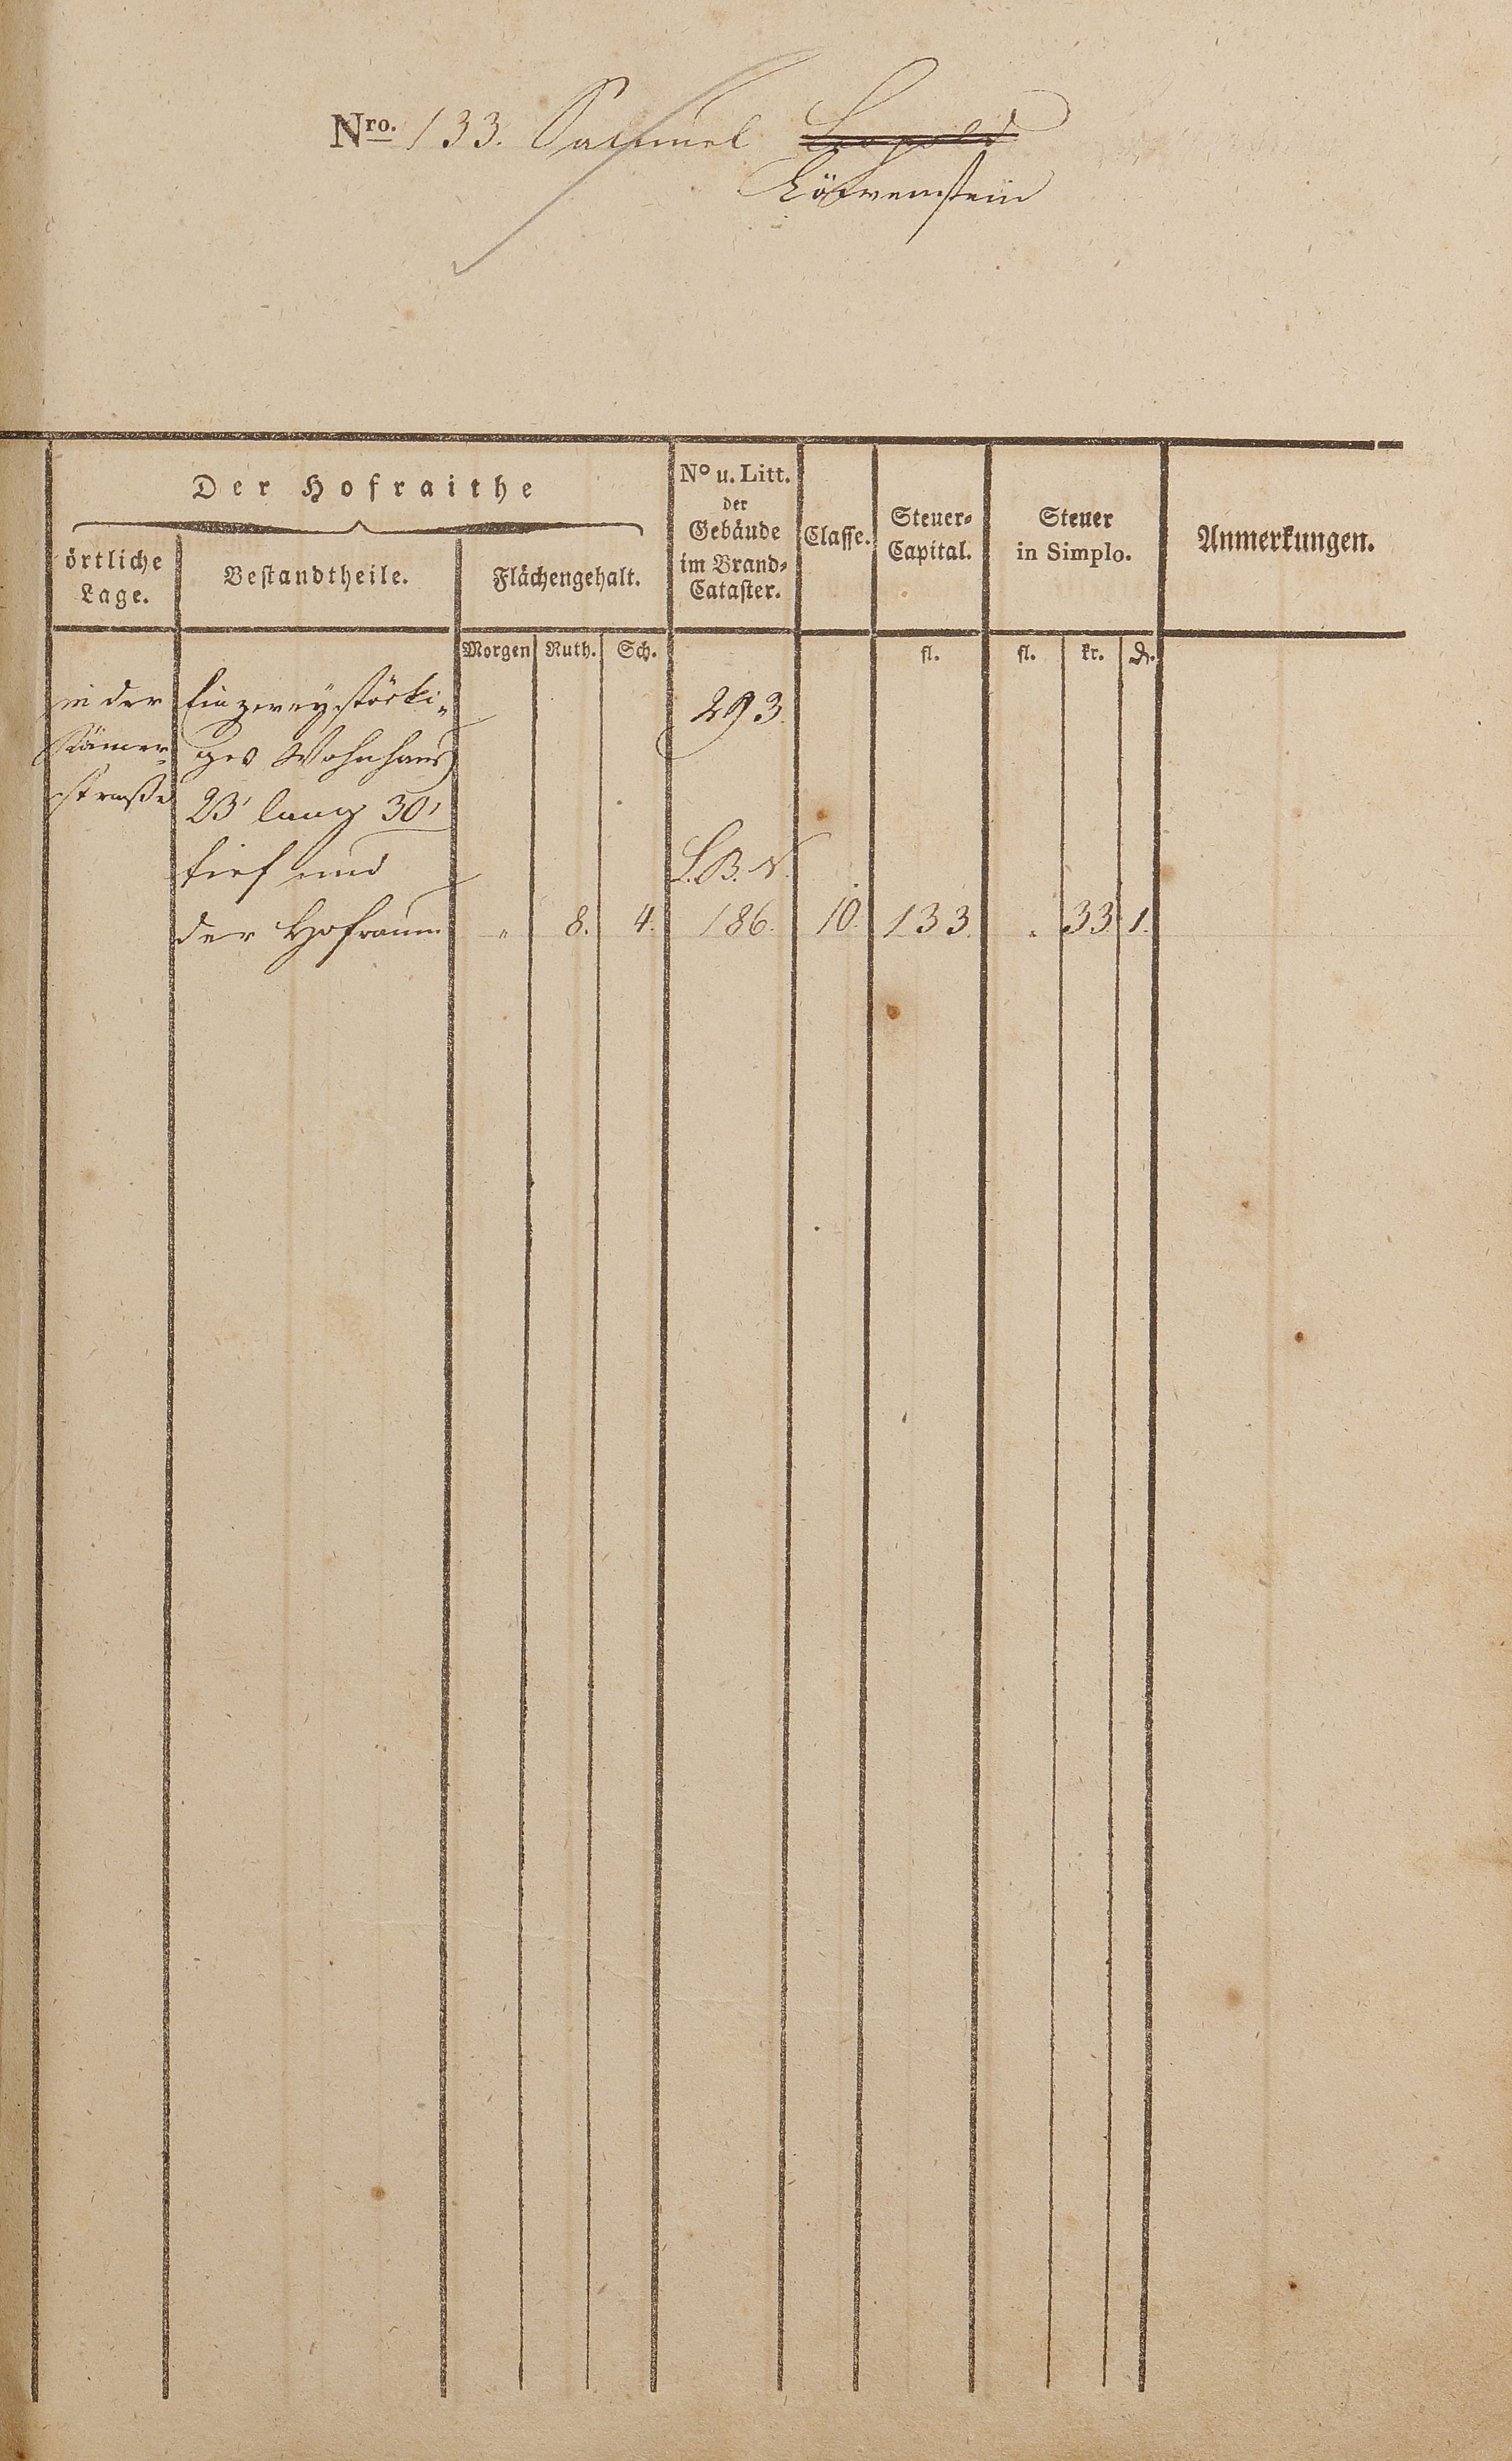 Nro. 133. Samuel Leopold
Löwenstein
Der Hofraithe
örtliche
Lage.
Bestandtheile.
Flächengehalt.
No u. Litt.
der
Gebäude
im Brand-
Cataster.
Classe.
Steuer-
Capital.
Steuer
in Simplo.
Anmerkungen.
Morgen Ruth. Sch. fl. fl. kr. D.
in der Ein zweystöcki„ 293.
Römer„ ges Wohnhaus
straße 23' lang 30'
tief und L.B.N.
der Hofraum „ 8. 4. 186. 10. 133. „ 33 1.